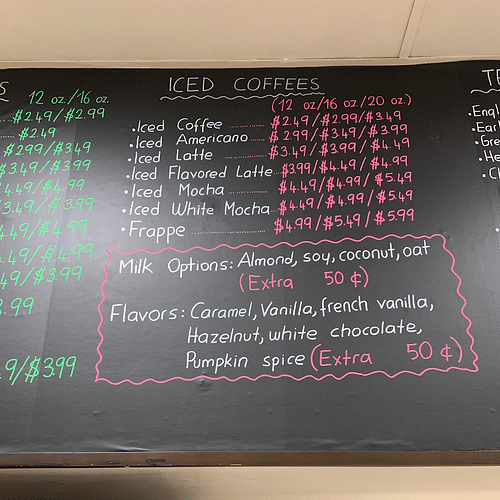 12 oz./16 oz.
$2.49/$2.99
$2.49
$2.99/$3.49
$3.49/$3.99
4.49/$4.99
3.49/$3.99
4.49/$4.99
.49/$4.99
49/$3.99
.99
9/$3.99
ICED COFFEES
(12 oz/16 oz/20 oz.)
•Iced Coffee ........ $2.49/$2.99/$3.49
•Iced Americano ........ $2.99/$3.49/$3.99
•Iced Latte ........ $3.49/$3.99/$4.49
•Iced Flavored Latte ... $3.99/$4.49/$4.99
•Iced Mocha ........ $4.49/$4.99/$5.49
•Iced White Mocha ... $4.49/$4.99/$5.49
•Frappe ........ $4.99/$5.49/$5.99
Milk Options: Almond, soy, coconut, oat
(Extra 50 ¢)
Flavors: Caramel, Vanilla, french vanilla,
Hazelnut, white chocolate,
Pumpkin spice (Extra 50 ¢)
TE
•Engl
•Ea
•Gre
•He
•Ch